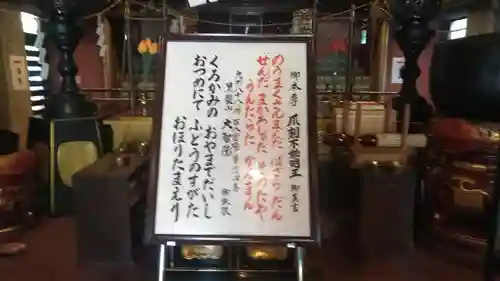 御本尊 爪刻不動明王 御真言
のうまくさんまんだ ばさらだん
せんだ まかろしゃだ
うんたらた かんまん
九州八十八ヶ所 百八霊場
黒髪山 大智院 御詠歌
くろかみの おやまでだいし
おつめにて ふどうのすがた
おほりたまえり